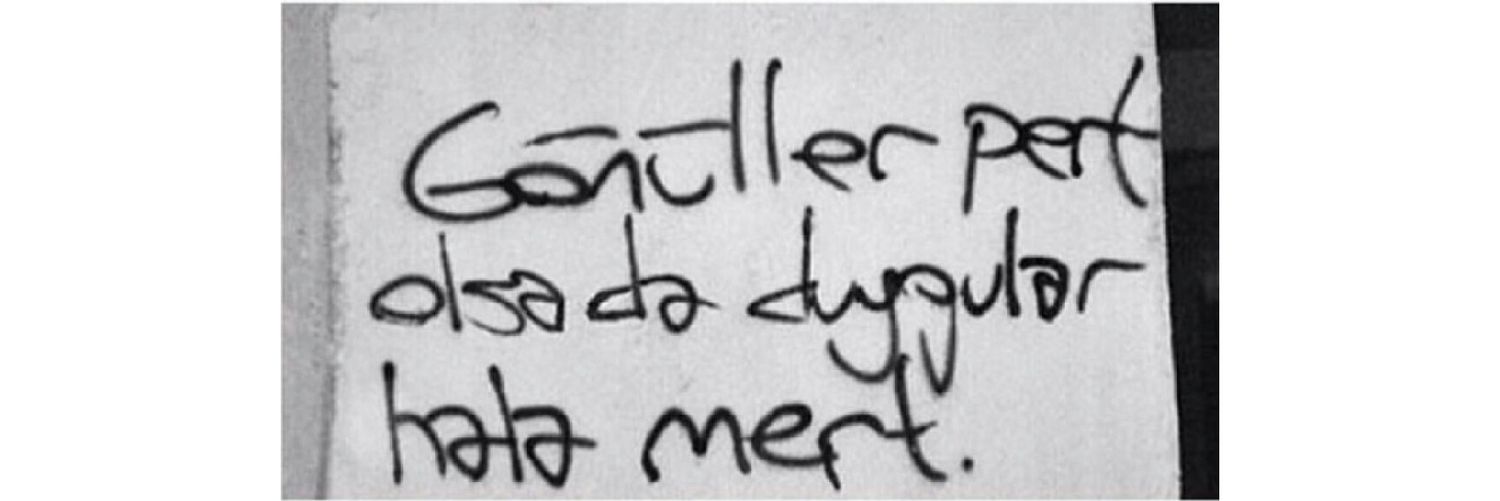 Gönüller pert
olsada duygular
hala mert.